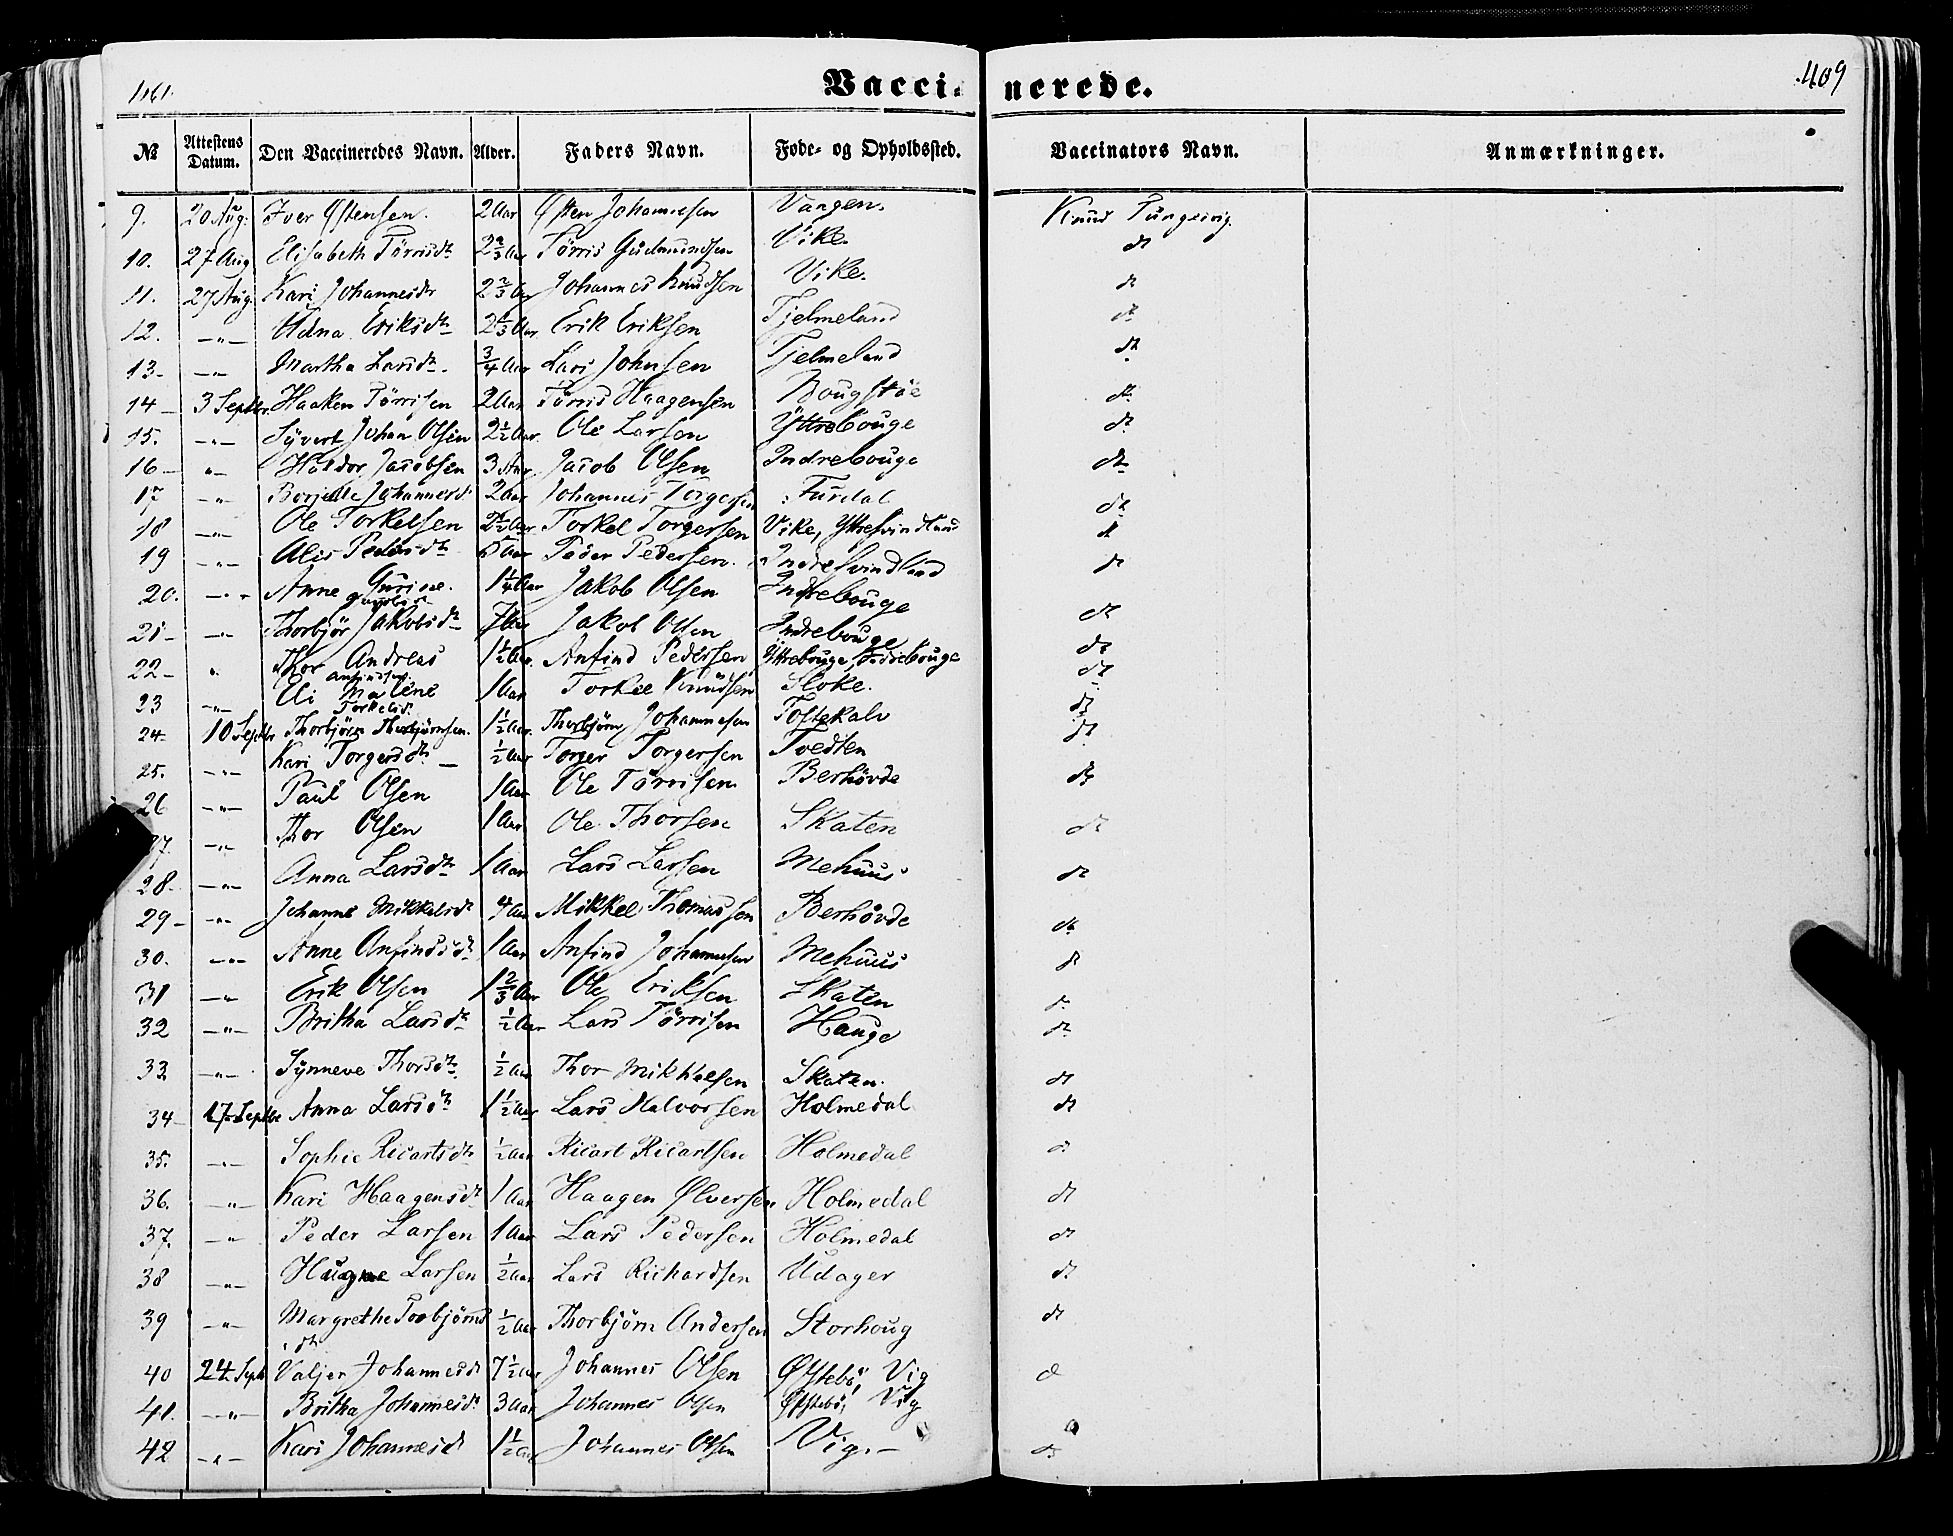 Vaccinerede.
409
№ Attestens Datum. Den Vaccineredes Navn. Alder. Faders Navn. Føde- og Opholdssted. Vaccinators Navn. Anmærkninger.
9. 20 Aug. Iver Østensen. 2 Aar Østen Johannesen Vangen. Knud
10. 27 Aug Elisabeth Tørrisdtr 2 2/3 Aar Tørris Gudmundsen Vike. dt
11. 27 Aug. Kari Johannesdtr 2 2/3 Aar Johannes Knudsen Vike. dt
12. —"— Udna Eriksdtr 2 1/3 Aar Erik Eriksen Tjelmeland dt
13. —"— Martha Larsdtr. 3/4 Aar Lars Johnsen Tjelmeland dt
14 3 Septbr. Haaken Tørrisen 2 Aar Tørris Haagensen Bougstøe dt
15. —"— Syvert Johan Olsen 2 1/2 Aar. Ole Larsen Yttrebouge dt
16 " Haldor Jacobsen 3 Aar. Jacob Olsen Indrebouge dt
17 —"— Johannesd. 2 Aar Johannes Torgersen Furdal dt
18 —"— Ole Torkelsen 2 1/2 Aar Torkel Torgersen Vike, Yttresvindland dt
19 —"— Alis Pedersdtr 5 Aar Peder Pedersen. Indresvindland dt
20. —"— Anne Gurine Jacobsd 1 1/4 Aar Jakob Olsen Indrebouge dt
21 —"— Thorbjør Jakobsdtr 7 Aar Jakob Olsen Indrebouge dt
22 " Thor Andreas Anfindsen 1 1/2 Aar. Anfind Pedersen Yttrebouge, Indrebouge dt
23 —"— Eli Malene Torkelsd. 1 Aar Torkel Knudsen Sloke. dt
24 10 Septbr Thorbjørn Thorbjørnsen. 1 1/2 Aar. Thorbjørn Johannesen Tostekalv dt
25. —"— Kari Torgersdtr 1/2 Aar Torger Torgersen Tvedten dt
26 —"— Paul Olsen 1 Aar Ole Tørrisen Berhøvde dt
27. —"— Thor Olsen 1 Aar Ole Thorsen Skaten dt
28. —"— Anna Larsdtr 1 Aar Lars Larsen Mehuus dt
29 —"— Johanne Mikkelsdt 4 Aar Mikkel Thomassen Berhøvde dt
30. —"— Anne Anfindsdtr 1 Aar Anfind Johannesen Mehuus dt
31 —"— Erik Olsen 1 2/3 Aar Ole Eriksen Skaten dt
32 —"— Britha Larsdtr 1/2 Aar Lars Tørrisen Hauge dt
33 —"— Synneve Thorsdtr. 1/2 Aar Thor Mikkelsen Skaten. dt
34 17 Septbr Anna Larsdtr 1 1/2 Aar Lars Halvorsen Holmedal dt
35. —"— Sophie Ricartsdtr 1/2 Aar Ricart Ricartsen Holmedal d
36. —"— Kari Haagensdt 1 Aar Haagen Ølversen Holmedal dt
37. —"— Peder Larsen 1 Aar Lars Pedersen Holmedal dt
38 —"— Larsen 1/2 Aar Lars Richardsen Udager dt
39 —"— Margrethe Torbjørnsdtr 1/2 Aar Thorbjørn Andersen Storhoug dt
40 24 Sept Valjer Johannesd 7 1/2 Aar Johannes Olsen Østebø, Vig d
41. —"— Britha Johannesd. 3 Aar Johannes Olsen Østebø, Vig
42 —"— Kari Johannesd 1 1/2 Aar Johannes Olsen Vig. dt